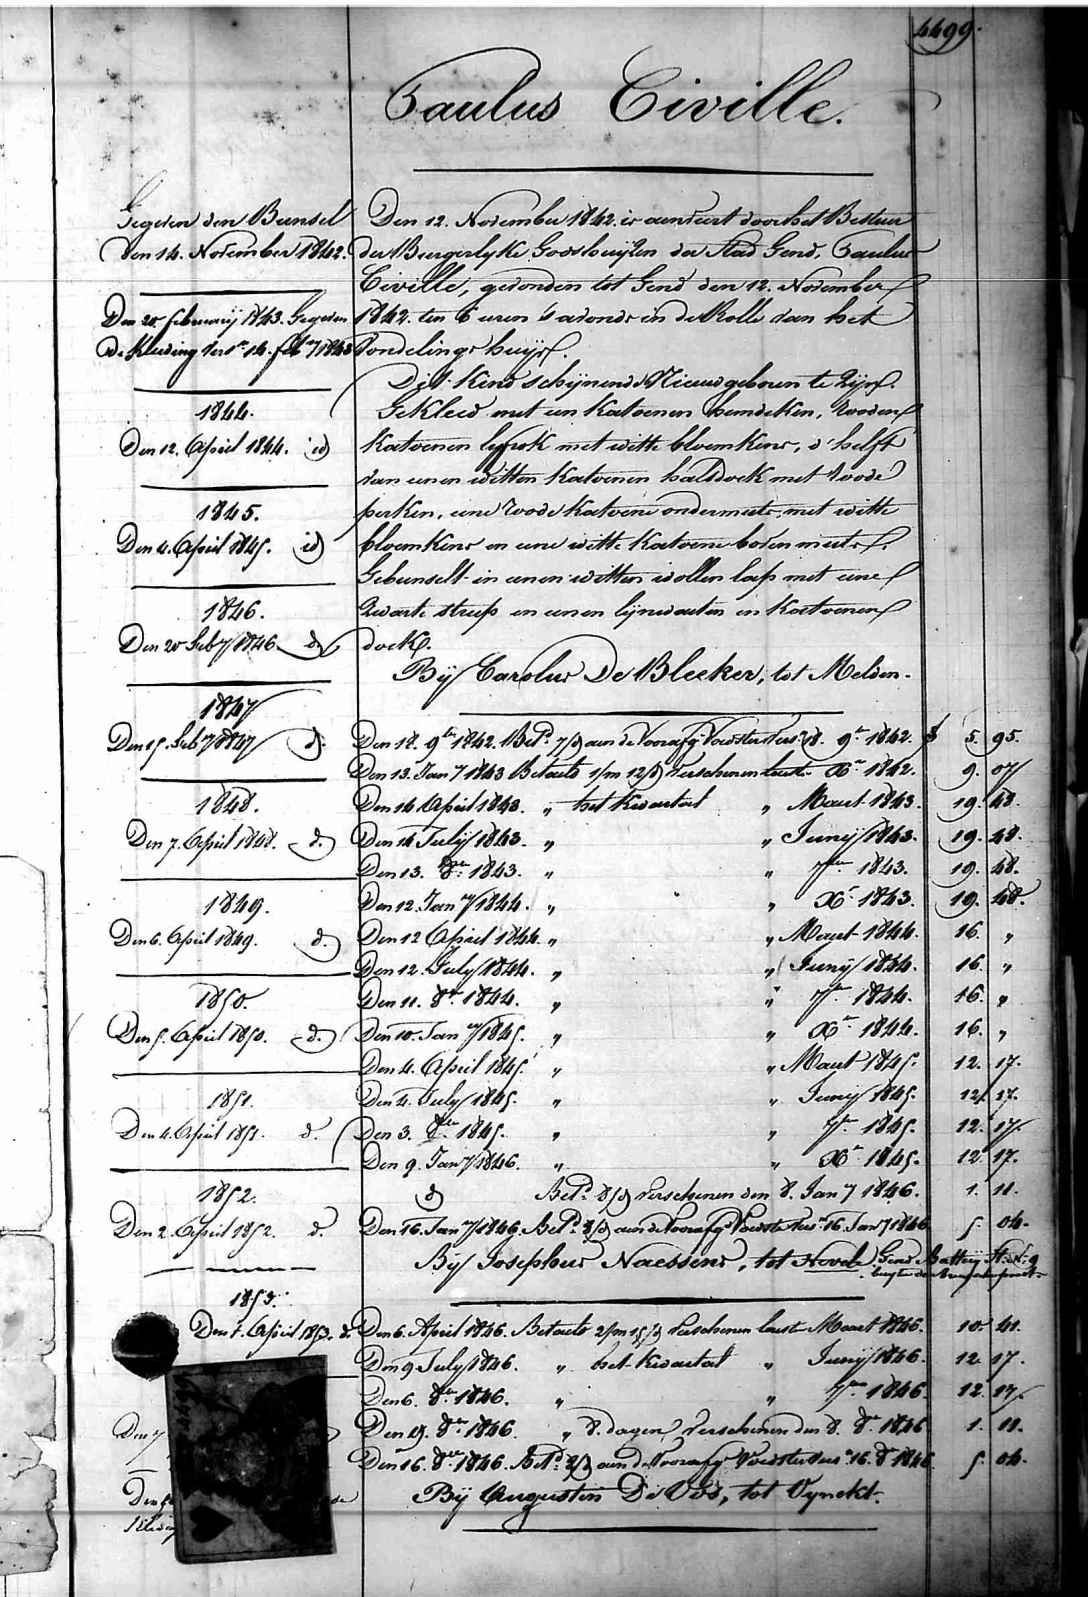 4499.
Paulus Civille.
Gegeven den Bunsel
den 14. November 1842.
Den 20 february 1843. Gegeven
de Kleeding
1844.
Den 12. April 1844. id
1845.
Den 4. April 1845. id
1846.
Den 20 Feb 1846 d.
1847
Den 15. Feb 1847 d.
1848.
Den 7. April 1848. d.
1849.
Den 6. April 1849. d.
1850.
Den 5. April 1850. d.
1851.
Den 4. April 1851. d.
1852.
Den 2. April 1852. d.
1853.
Den 1. April 1853. d.
Den 12. November 1842. is aenveert door het Bestuer
der Burgerlyke Godshuijzen der Stad Gend, Paulus
Civille, gevonden tot Gend den 12. November
1842. ten 6 uren 's avonds in de Rolle van het
Vondelingshuijs.
Dit Kind schijnende Nieuwgeboren te Zijn.
Gekleed met een Katoenen hemdeken, rooden
Katoenen lyfrok met witte bloemkens, d'helft
van eenen witten Katoenen halsdoek met roode
perken, eene roode Katoene ondermuts, met witte
bloemkens en eene witte Katoene boven muts.
Gebunselt in eenen witten wollen lap met eene
Zwarte streep en eenen lijnwaeten en Katoenen
doek.
Bij Carolus De Bleeker, tot Melden.
Den 18. 9br 1842. Bet. 7/d aen de Voorafg. Voedster 18. 9r 1842. 5. 95.
Den 13. Jany 1843 Betaelt 1/m 12/d verschenen laetste Xr 1842. 9. 07
Den 14 April 1843. " het Kwartael " Maert 1843. 19. 48.
Den 14 July 1843. " " Junij 1843. 19. 48.
Den 13. 8br 1843. " " 7br 1843. 19. 48.
Den 12. Jany 1844. " " Xr 1843. 19. 48.
Den 12 April 1844. " " Maert 1844. 16. "
Den 12. July 1844. " " Junij 1844. 16. "
Den 11. 8r 1844. " " 7br 1844. 16. "
Den 10. Jany 1845. " " Xr 1844. 16. "
Den 4. April 1845. " " Maert 1845. 12. 17.
Den 4. July 1845. " " Junij 1845. 12. 17.
Den 3. 8br 1845. " " 7br 1845. 12. 17.
Den 9. Jany 1846. " " Xr 1845. 12. 17.
d Bet. 8/d verschenen den 8. Jany 1846. 1. 11.
Den 16. Jany 1846. Bet. 8/d aen de Voorafg. Voedster 16. Jany 1846 5. 04.
Bij Josephus Naessens, tot Gend
Den 6. April 1846. Betaelt 2/m 15/d verschenen laetste Maert 1846. 10. 41.
Den 9. July 1846. " het Kwartael " Junij 1846. 12. 17.
Den 6. 8br 1846. " " 7br 1846. 12. 17.
Den 19. 8br 1846. " 8. dagen verschenen den 8. 8r 1846 1. 11.
Den 16. 8br 1846. Bet. 8/d aen de Voorafg. Voedster 16. 8r 1846 5. 04.
Bij Augustin De Vos, tot Vynckt.